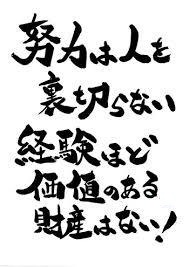 努力は人を
裏切らない
経験ほど
価値のある
財産はない!